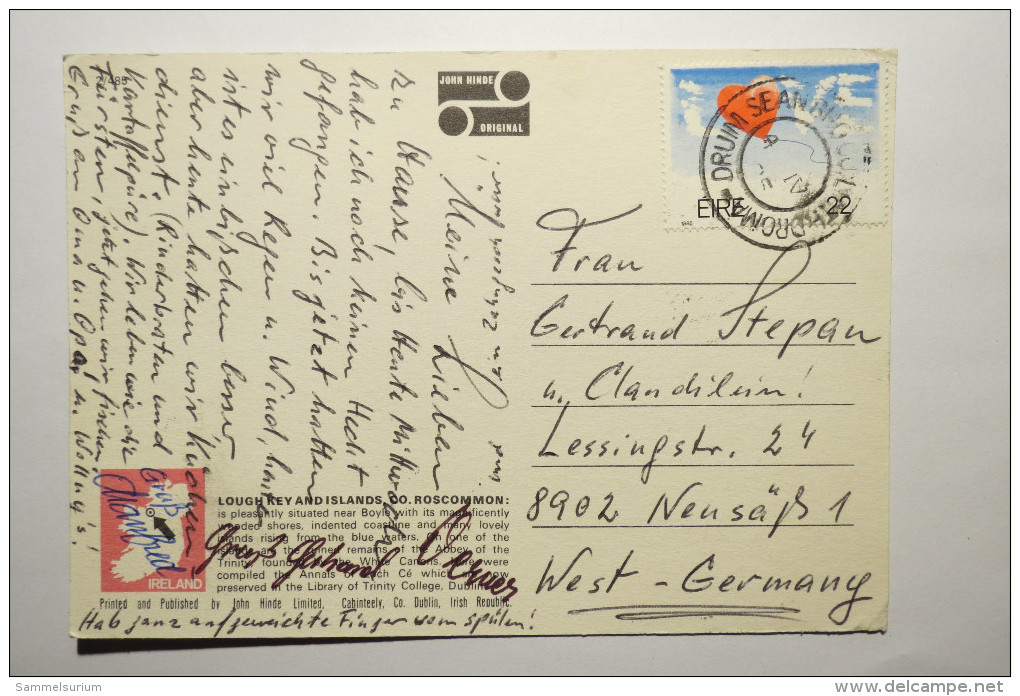 2/485
JOHN HINDE
ORIGINAL
Meine Lieben
zu Hause, bis heute Mittwoch
hab ich noch keinen Hecht
gefangen. Bis jetzt hatten
wir viel Regen u. Wind, heute
ist es ein bißchen besser
aber heute hatten wir Küchen-
dienst. (Rinderbraten und
Kartoffelpüre). Wir leben wie die
Fürsten, jetzt gehen wir fischen.
Gruß an Oma u. Opa, u. Wollny's!
und
Gruß
Manfred
Gruß Gerhard
Hab ganz aufgeweichte Finger vom spülen!
ÉIRE 22
DRUIM SEAN
DROM
Frau
Gertraud Stepan
u. Claudilein!
Lessingstr. 24
8902 Neusäß 1
West-Germany
IRELAND
LOUGH KEY AND ISLANDS, CO. ROSCOMMON:
is pleasantly situated near Boyle with its magnificently
wooded shores, indented coastline and many lovely
islands rising from the blue waters. On one of the
islands are the remains of the Abbey of the
Trinity founded by the White Canons. Here were
compiled the Annals of Loch Cé which are now
preserved in the Library of Trinity College, Dublin.
Printed and Published by John Hinde Limited, Cabinteely, Co. Dublin, Irish Republic.
Sammelsurium
www.delcampe.net